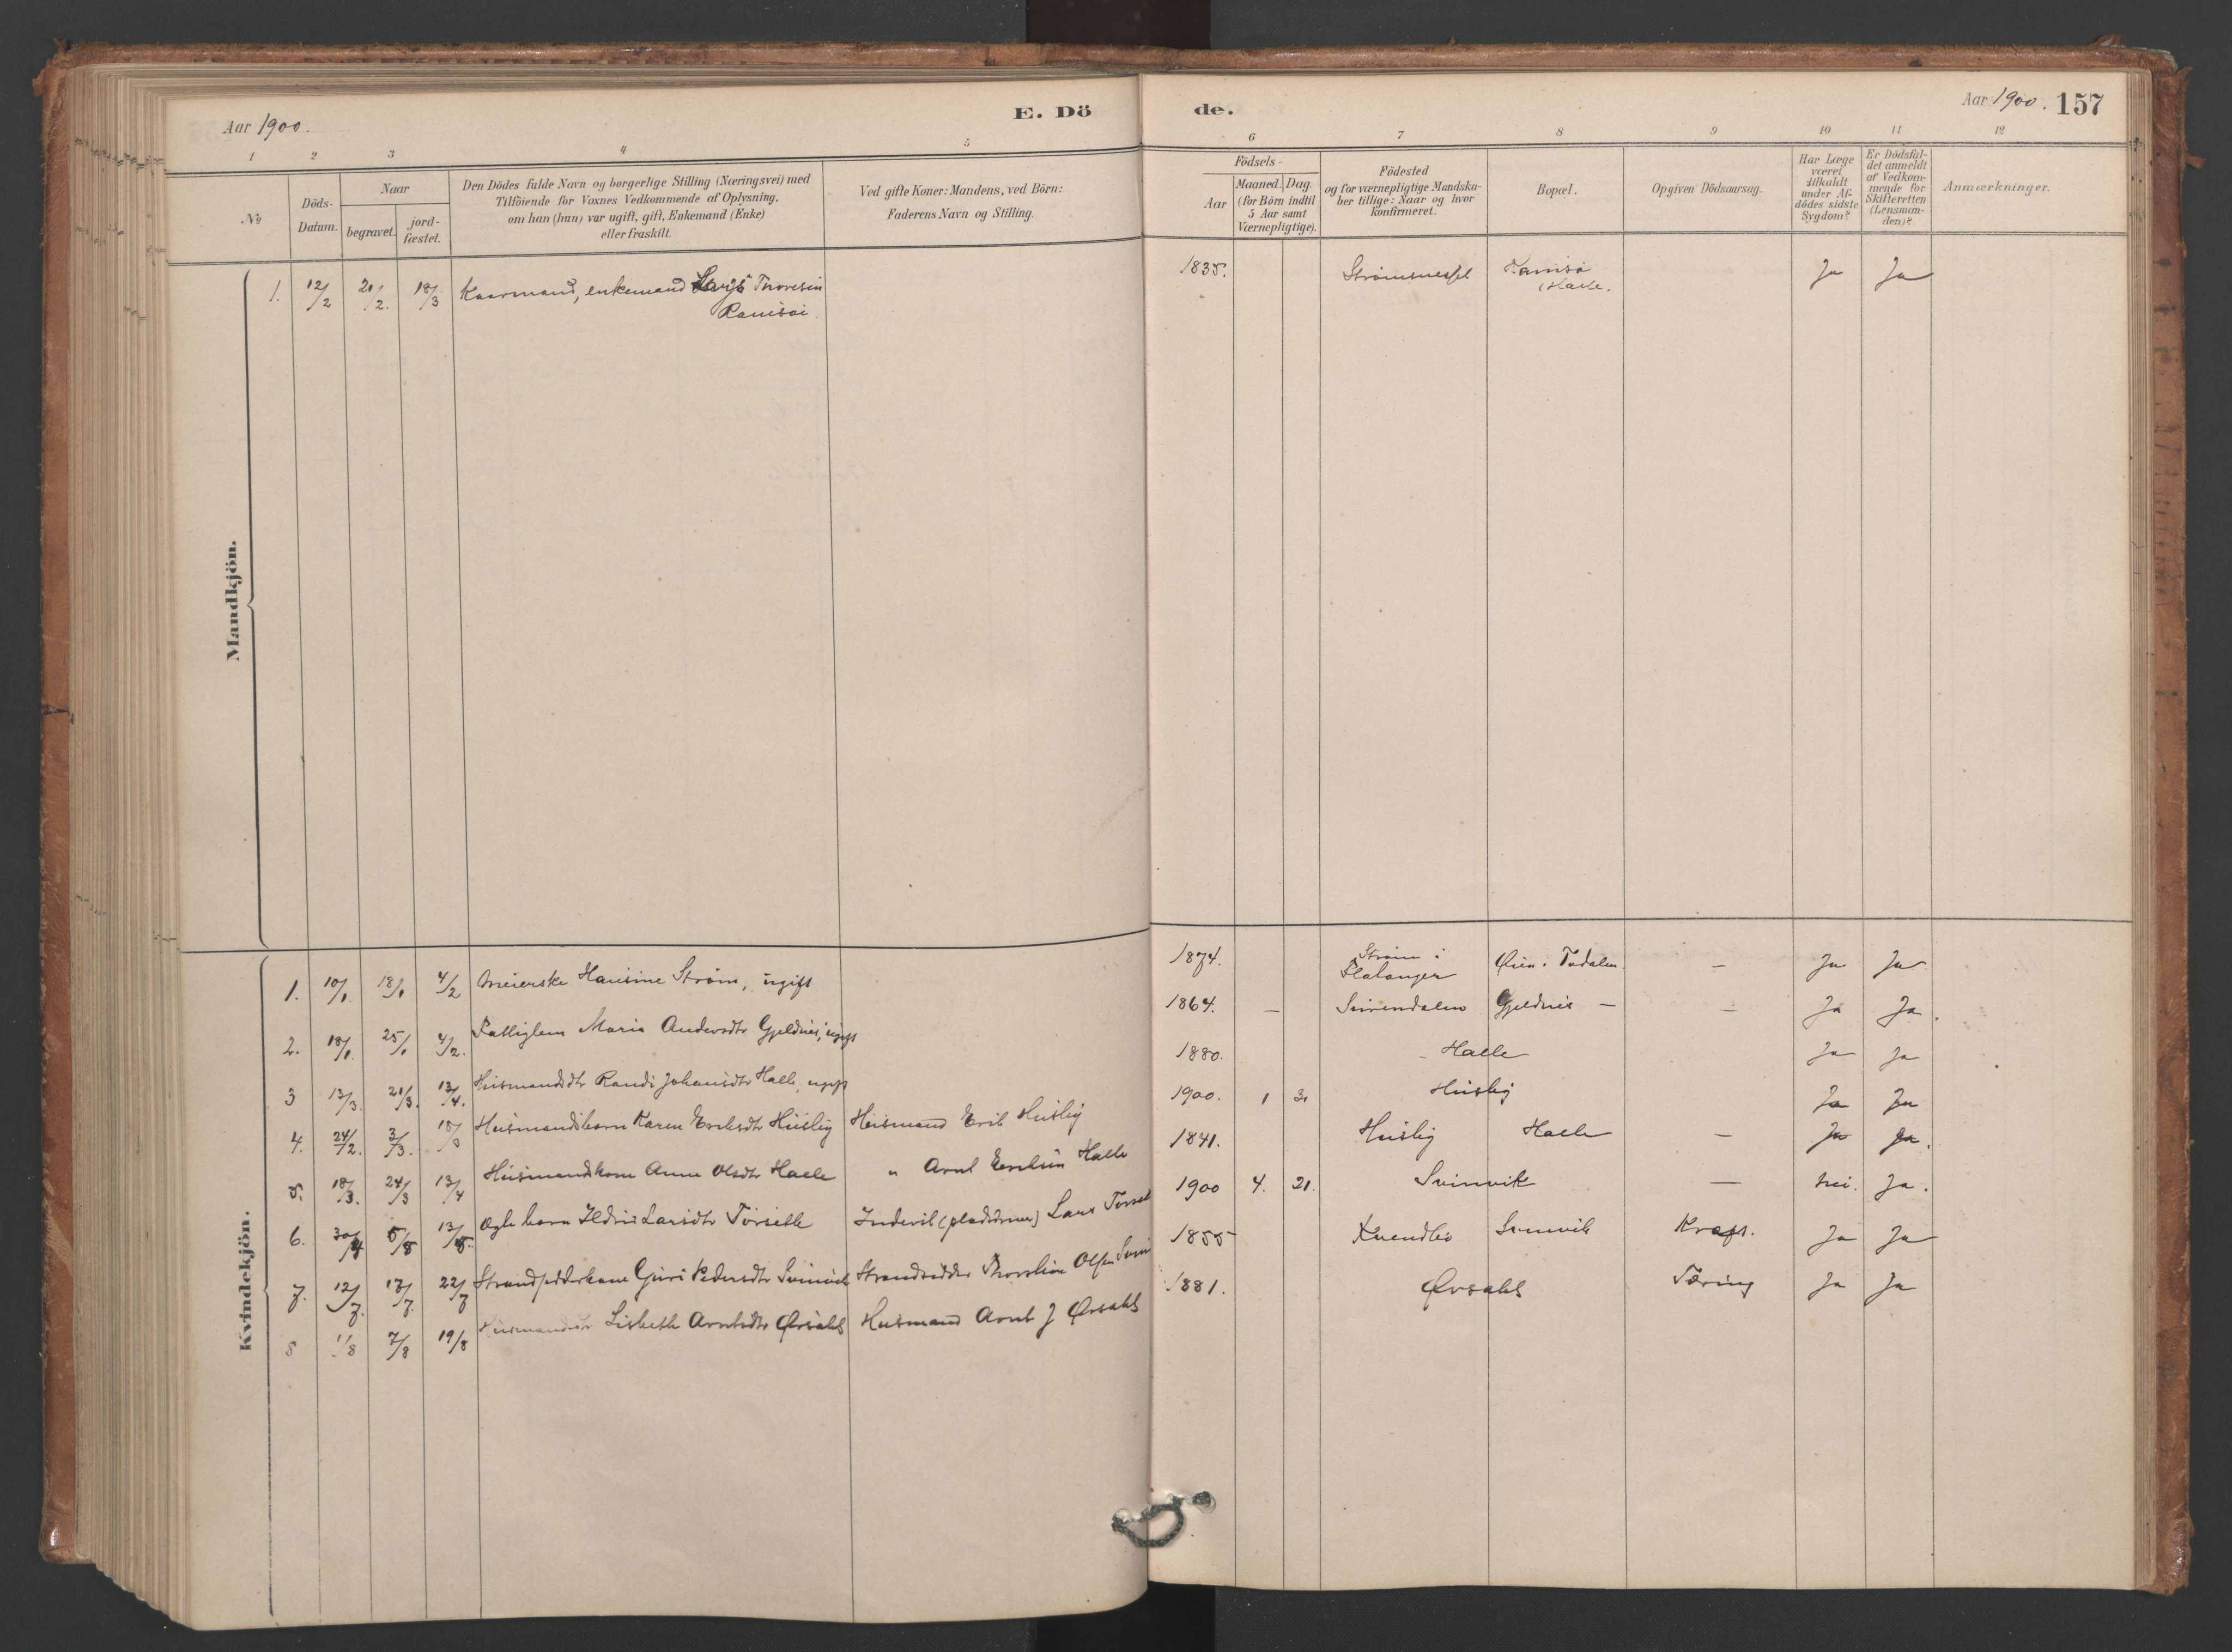 Aar 1900.
E. Dö
de.
Aar 1900.
157
1 2 3 4 5 6 7 8 9 10 11 12
№
Döds-
Datum.
Naar
begravet.
jord-
fæstet.
Den Dödes fulde Navn og borgerlige Stilling (Næringsvei) med
Tilföiende for Voxnes Vedkommende af Oplysning,
om han (hun) var ugift, gift, Enkemand (Enke)
eller fraskilt.
Ved gifte Koner: Mandens, ved Börn:
Faderens Navn og Stilling.
Födsels-
Aar
Maaned. Dag.
(for Börn indtil
5 Aar samt
Værnepligtige).
Födested
og for værnepligtige Mandska-
ber tillige: Naar og hvor
konfirmeret.
Bopæl.
Opgiven Dödsaarsag.
Har Læge
været
tilkaldt
under Af-
dödes sidste
Sygdom?
Er Dödsfal-
det anmeldt
af Vedkom-
mende for
Skifteretten
(Lensman-
den)?
Anmærkninger.
Mandkjön.
1. 12/2 21/2. 18/3 Kaarmand, enkemand Lars Thoresen 1835. Strømsnesset Ramsø Ja Ja
Ramsøi. (Halle.
Kvindekjön.
1. 10/1. 18/1 4/2 Meierske Hansine Strøm, ugift 1874. Strøm i Flatanger Øien. Todalen. – Ja Ja
2. 18/1. 25/1 4/2. Fattiglem Marie Andersdtr Gjeldnes, ugift 1864. – Surendalen Gjeldnes – – Ja Ja.
3 13/3. 21/3. 13/4. Husmandsdtr Randi Johansdtr Halle, ugift 1880. Halle Ja Ja
4. 24/2. 3/3. 18/3 Husmandsbarn Karen Eriksdtr Husby Husmand Erik Husby 1900. 1 31 Husby Ja Ja
5. 18/3. 24/3 13/4 Husmandskone Anne Olsdtr Halle " Arnt Eriksen Halle 1841. Husby Halle – Ja Ja.
6. 30/4 5/5 13/5. Ægte barn Ildri Larsdtr Torseth Inderst Lars Torset 1900 4. 21. Svinvik – nei. Ja.
7. 12/7. 17/7. 22/7 Strandsidderkone Guri Pedersdtr Svinvik Strandsidder Olsen Svin 1855 Kvendbø Svinvik Kræft. Ja Ja
8 1/8 7/8 19/8 Husmandsdtr Lisbeth Arntsdtr Ørsahl Husmand Arnt J Ørsahl 1881. Ørsahl Tæring Ja Ja